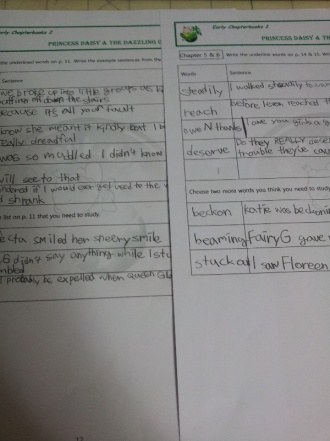 Early Chapterbooks 2
PRINCESS DAISY & THE DAZZLING
underlined words on p. 11. Write the example sentences from the
Sentence
we broke up into little groups as
off down the stairs
because it's all your fault
know she meant it kindly but I
really dreadful
was so muddled I didn't know
will see to that
wondered if I would ever get used to the
shrank
list on p. 11 that you need to study.
smiled her sneery smile
didn't say anything while I
probably be expelled when Queen
Early Chapterbooks 2
PRINCESS DAISY & TH
Chapter 5 & 6 Write the underlined words on p. 14 & 15. Wri
Words Sentence
steadily I walked steadily
reach before I even reached
owe N thanks I owe you girls a
deserve Do they REALLY
trouble they've
Choose two more words you think you need to study
beckon Katie was
beaming Fairy G gave
stuck out I saw Floreen